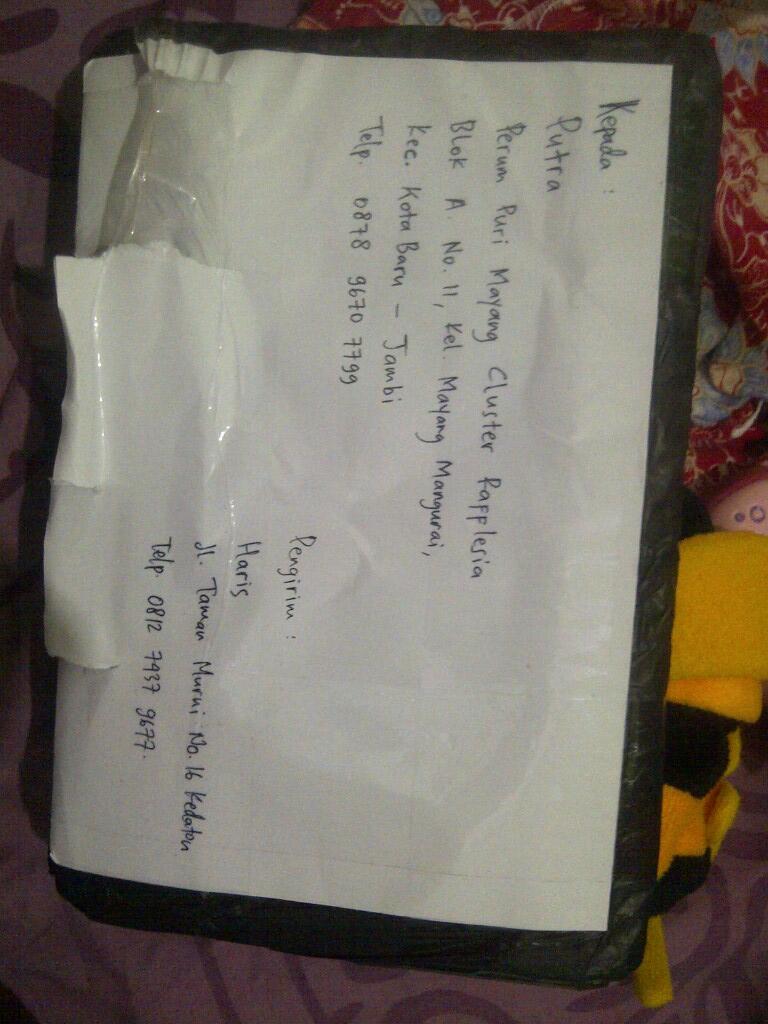 Kepada :
Putra
Perum Puri Mayang Cluster Rafflesia
Blok A. No. 11, Kel. Mayang Mangurai,
Kec. Kota Baru - Jambi
Telp. 0878 9670 7799
Pengirim :
Haris
Jl. Taman Murni No. 16 Kedaton
Telp. 0812 7937 9677.